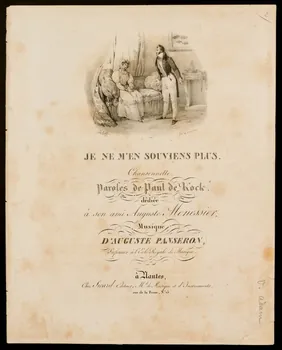 JE NE M'EN SOUVIENS PLUS,
Chansonnette,
Paroles de Paul de Kock.
dédiée
à son ami Auguste Menessier,
Musique
D'AUGUSTE PANSERON,
Professeur à l'École Royale de Musique
à Nantes,
Editeur, Md. de Musique et d'Instrumens,
rue de la Fosse,